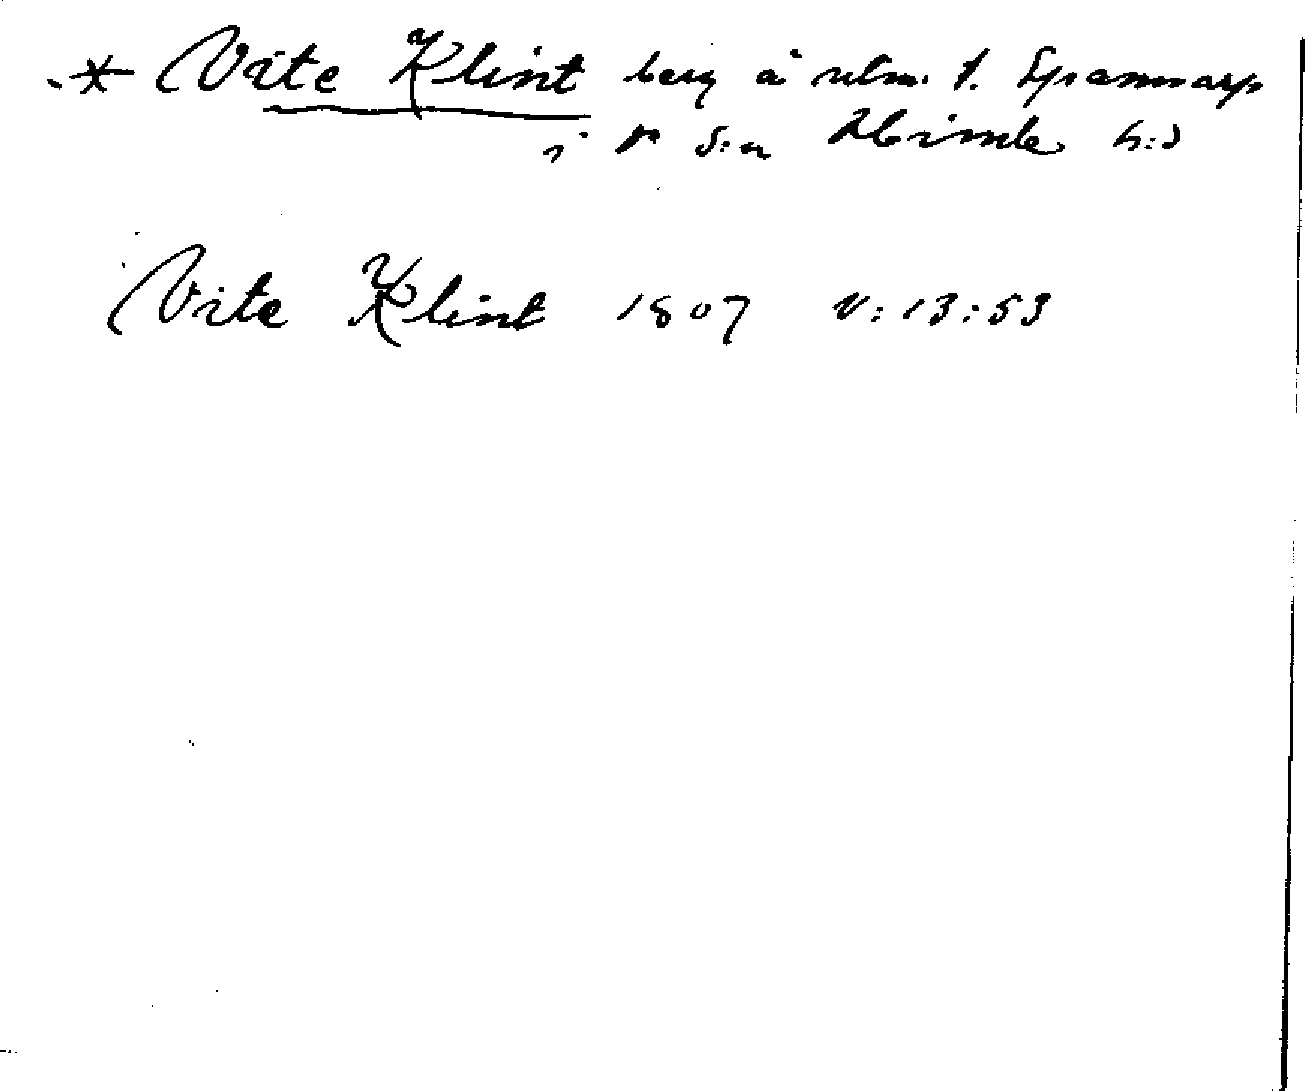 * Vite Klint berg å utm. t. Spannarp
i p s:n Himle h:d
Vite Klint 1807 V:13:53